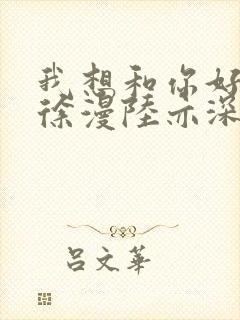 我想和你好
徐漫陸亦深
呂文華